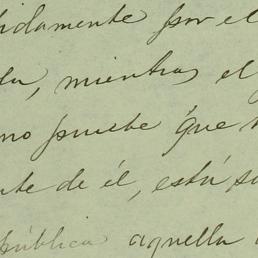 idamente por el
da, mientras el
no pruebe que
nte de él, está
pública aquella